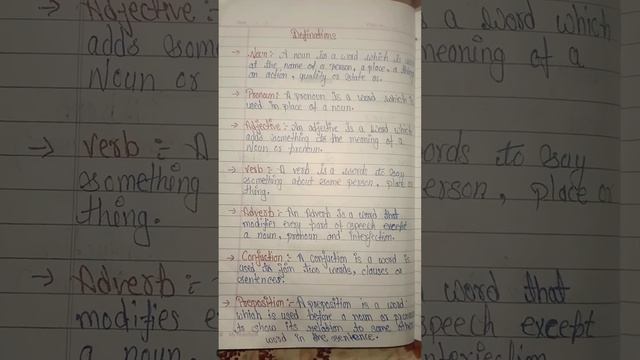 Definations
→ Noun:- A noun is a word which is used
at the name of a person, a place, a thing
an action, quality or state or.
→ Pronoun:- A pronoun is a word which is
used in place of a noun.
→ Adjective:- An adjective is a word which
adds something to the meaning of a
Noun or pronoun.
→ Verb:- A verb is a words to say
something about some person, place or
thing.
→ Adverb:- An Adverb is a word that
modifies every part of speech except
a noun, pronoun and interjection.
→ Confuction:- A confuction is a word is
used to join two words, clauses or
sentences.
→ Preposition:- A preposition is a word
which is used before a noun or pronoun
to show its relation to some other
word in the sentence.